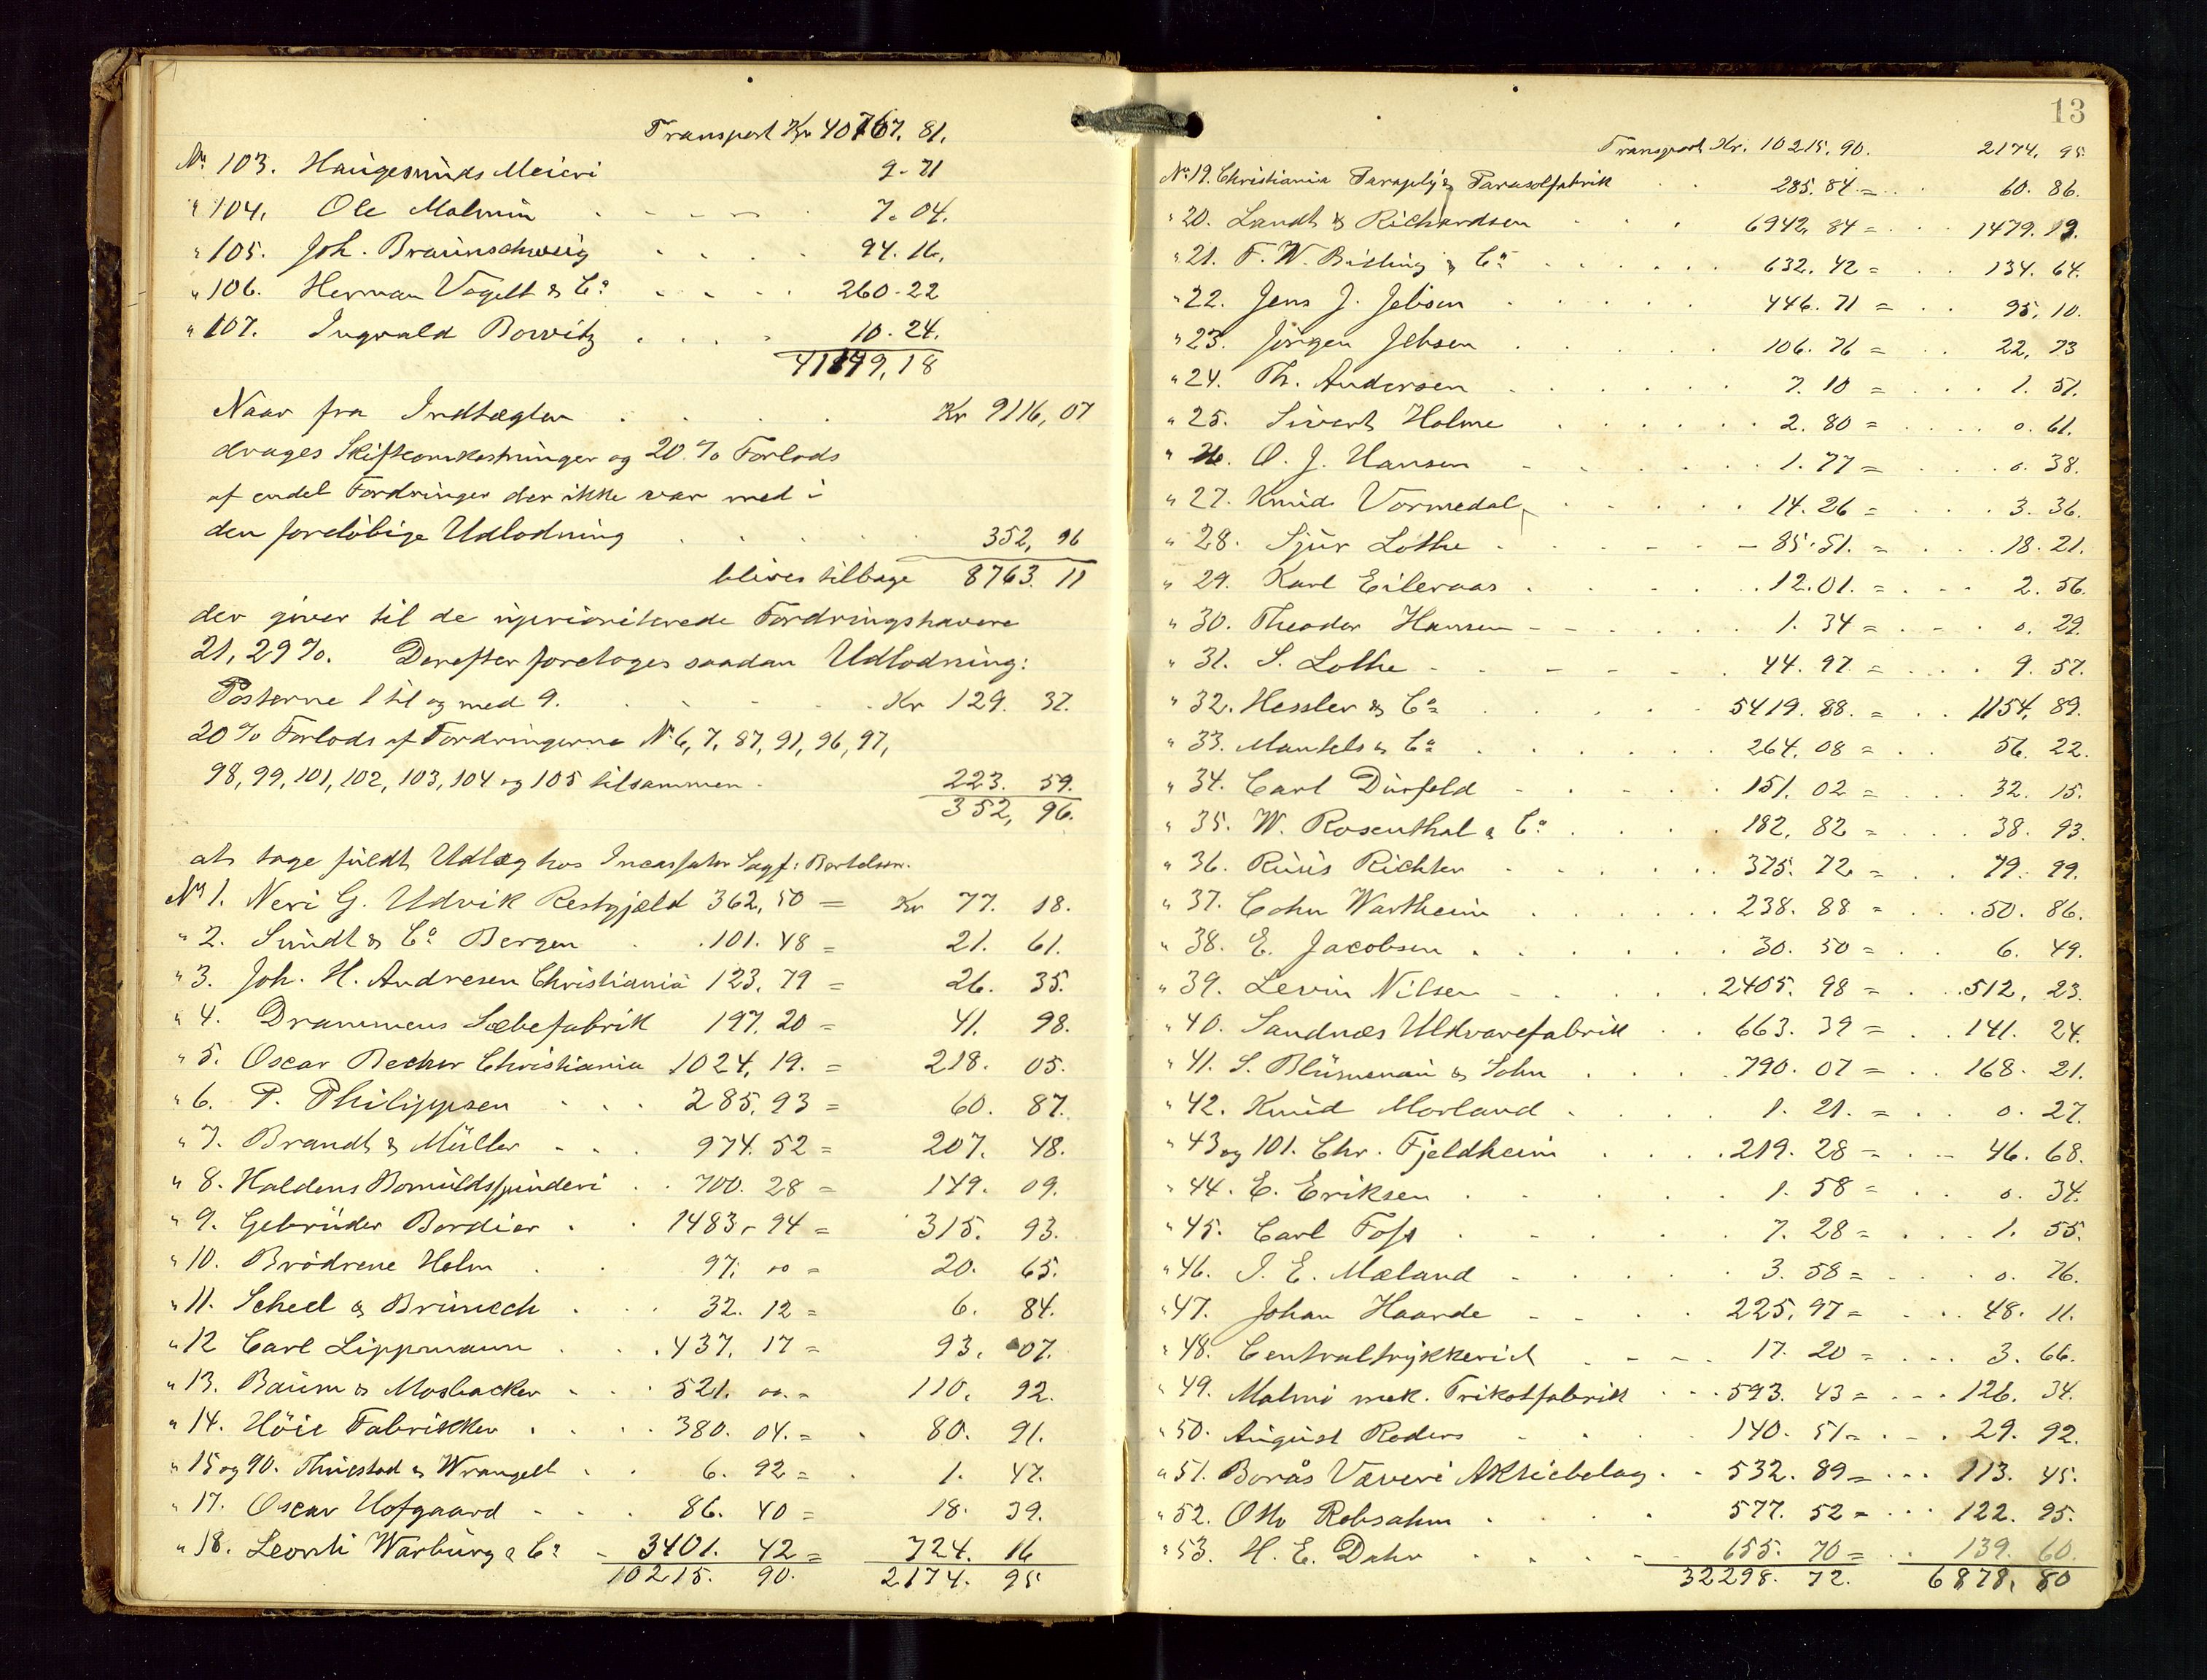 Transport Kr 40767. 81.
No 103. Haugesunds Meieri 9. 71
" 104. Ole Malmin 7. 04.
" 105. Joh. Braunschweig 94. 16.
" 106. Herman Vogelt & Co 260. 22
" 107. Ingvald Borvitz 10. 24.
41149, 18
Naar fra Indtægten Kr 9116, 07
drages Skifteomkostninger og 20 % Forlods
af endel Fordringer der ikke var med i
den foreløbige Udlodning 352, 96
blives tilbage 8763. 11
der giver til de uprioriterede Fordringshavere
21, 29 %. Derefter foretages saadan Udlodning:
Posterne 1 til og med 9. Kr 129. 37.
20 % Forlods af Fordringerne No 6, 7, 87, 91, 96, 97,
98, 99, 101, 102, 103, 104 og 105 tilsammen 223. 59.
352, 96.
at tage fuldt Udlæg hos Incassator Sagf: Bertelsen.
No 1. Neri G. Udvik Restgjæld 362, 50 = Kr 77. 18.
" 2. Sundt & Co Bergen 101. 48 = 21. 61.
" 3. Joh. H. Andresen Christiania 123. 79 = 26. 35.
" 4. Drammens Sæbefabrik 197. 20 = 41. 98.
" 5. Oscar Becker Christiania 1024, 19. = 218. 05.
" 6. P. Philippsen 285, 93 = 60. 87.
" 7. Brandt & Müller 974. 52 = 207. 48.
" 8. Haldens Bomuldsspinderi 700. 28 = 149. 09.
" 9. Gebrüder Bordier 1483. 94 = 315. 93.
" 10. Brödrene Holm 97. 00 = 20. 65.
" 11. Scheel & Brünech 32. 12 = 6. 84.
" 12 Carl Lippmann 437. 17 = 93. 07.
" 13. Baum & Mosbacker 521. 00. = 110, 92.
" 14. Höie Fabrikker 380. 04. = 80. 91.
" 15 og 90. Thuestad & Wrangell 6. 92 = 1. 47.
" 17. Oscar Hofgaard 86. 40 = 18. 39.
" 18. Leonti Warburg & Co 3401. 42 = 724. 16
10215. 90. 2174. 95
13
Transport Kr. 10215. 90. 2174. 95
No 19. Christiania Paraply & Parasolfabrik 285. 84 = 60. 86.
" 20. Landt & Richardsen 6942, 84 = 1479. 13.
" 21. F. W. Bitling & Co 632. 42 = 134. 64.
" 22. Jens J. Jebsen 446. 71 = 95, 10.
" 23. Jörgen Jebsen 106. 76 = 22, 73
" 24. Th. Andersen 7. 10 = 1. 51.
" 25. Sivert Holme 2. 80 = 0. 61.
" 26. O. J. Hansen 1. 77 = 0. 38.
" 27. Knud Vormedal 14. 26 = 3. 36.
" 28. Sjur Lothe 85. 51. = 18. 21.
" 29. Karl Eileraas 12. 01. = 2. 56.
" 30. Theodor Hansen 1. 34 = 0. 29.
" 31. S. Lothe 44. 97. = 9. 57.
" 32. Hessler & Co 5419. 88. = 1154, 89.
" 33. Mantels & Co 264. 08 = 56. 22.
" 34. Carl Dürfeld 151. 02 = 32. 15.
" 35. W. Rosenthal & Co 182, 82 = 38. 93.
" 36. Ruus Richter 375. 72 = 79. 99.
" 37. Cohn Wartheim 238. 88 = 50. 86.
" 38. E. Jacobsen 30. 50 = 6. 49.
" 39. Levin Nilsen 2405. 98 = 512, 23.
" 40. Sandnæs Uldvarefabrik 663. 39 = 141. 24.
" 41. S. Blumenau & Sohn 790. 07 = 168. 21.
" 42. Knud Morland 1. 21. = 0. 27.
" 43 og 101. Chr. Fjeldheim 219. 28 = 46. 68.
" 44. E. Eriksen 1. 58 = 0. 34.
" 45. Carl Foss 7. 28 = 1. 55.
" 46. I. E. Mæland 3. 58 = 0. 76.
" 47. Johan Haarde 225. 97 = 48. 11.
" 48. Centraltrykkeriet 17. 20 = 3. 66.
" 49. Malmö mek. Trikotfabrik 593. 43 = 126. 34.
" 50. August Roders 140. 51 = 29. 92.
" 51. Borås Væveri Aktiebolag 532. 89 = 113. 45.
" 52. Otto Robsahm 577. 52 = 122. 95.
" 53. H. E. Dahr 655. 70 = 139. 60.
32298. 72. 6878, 80